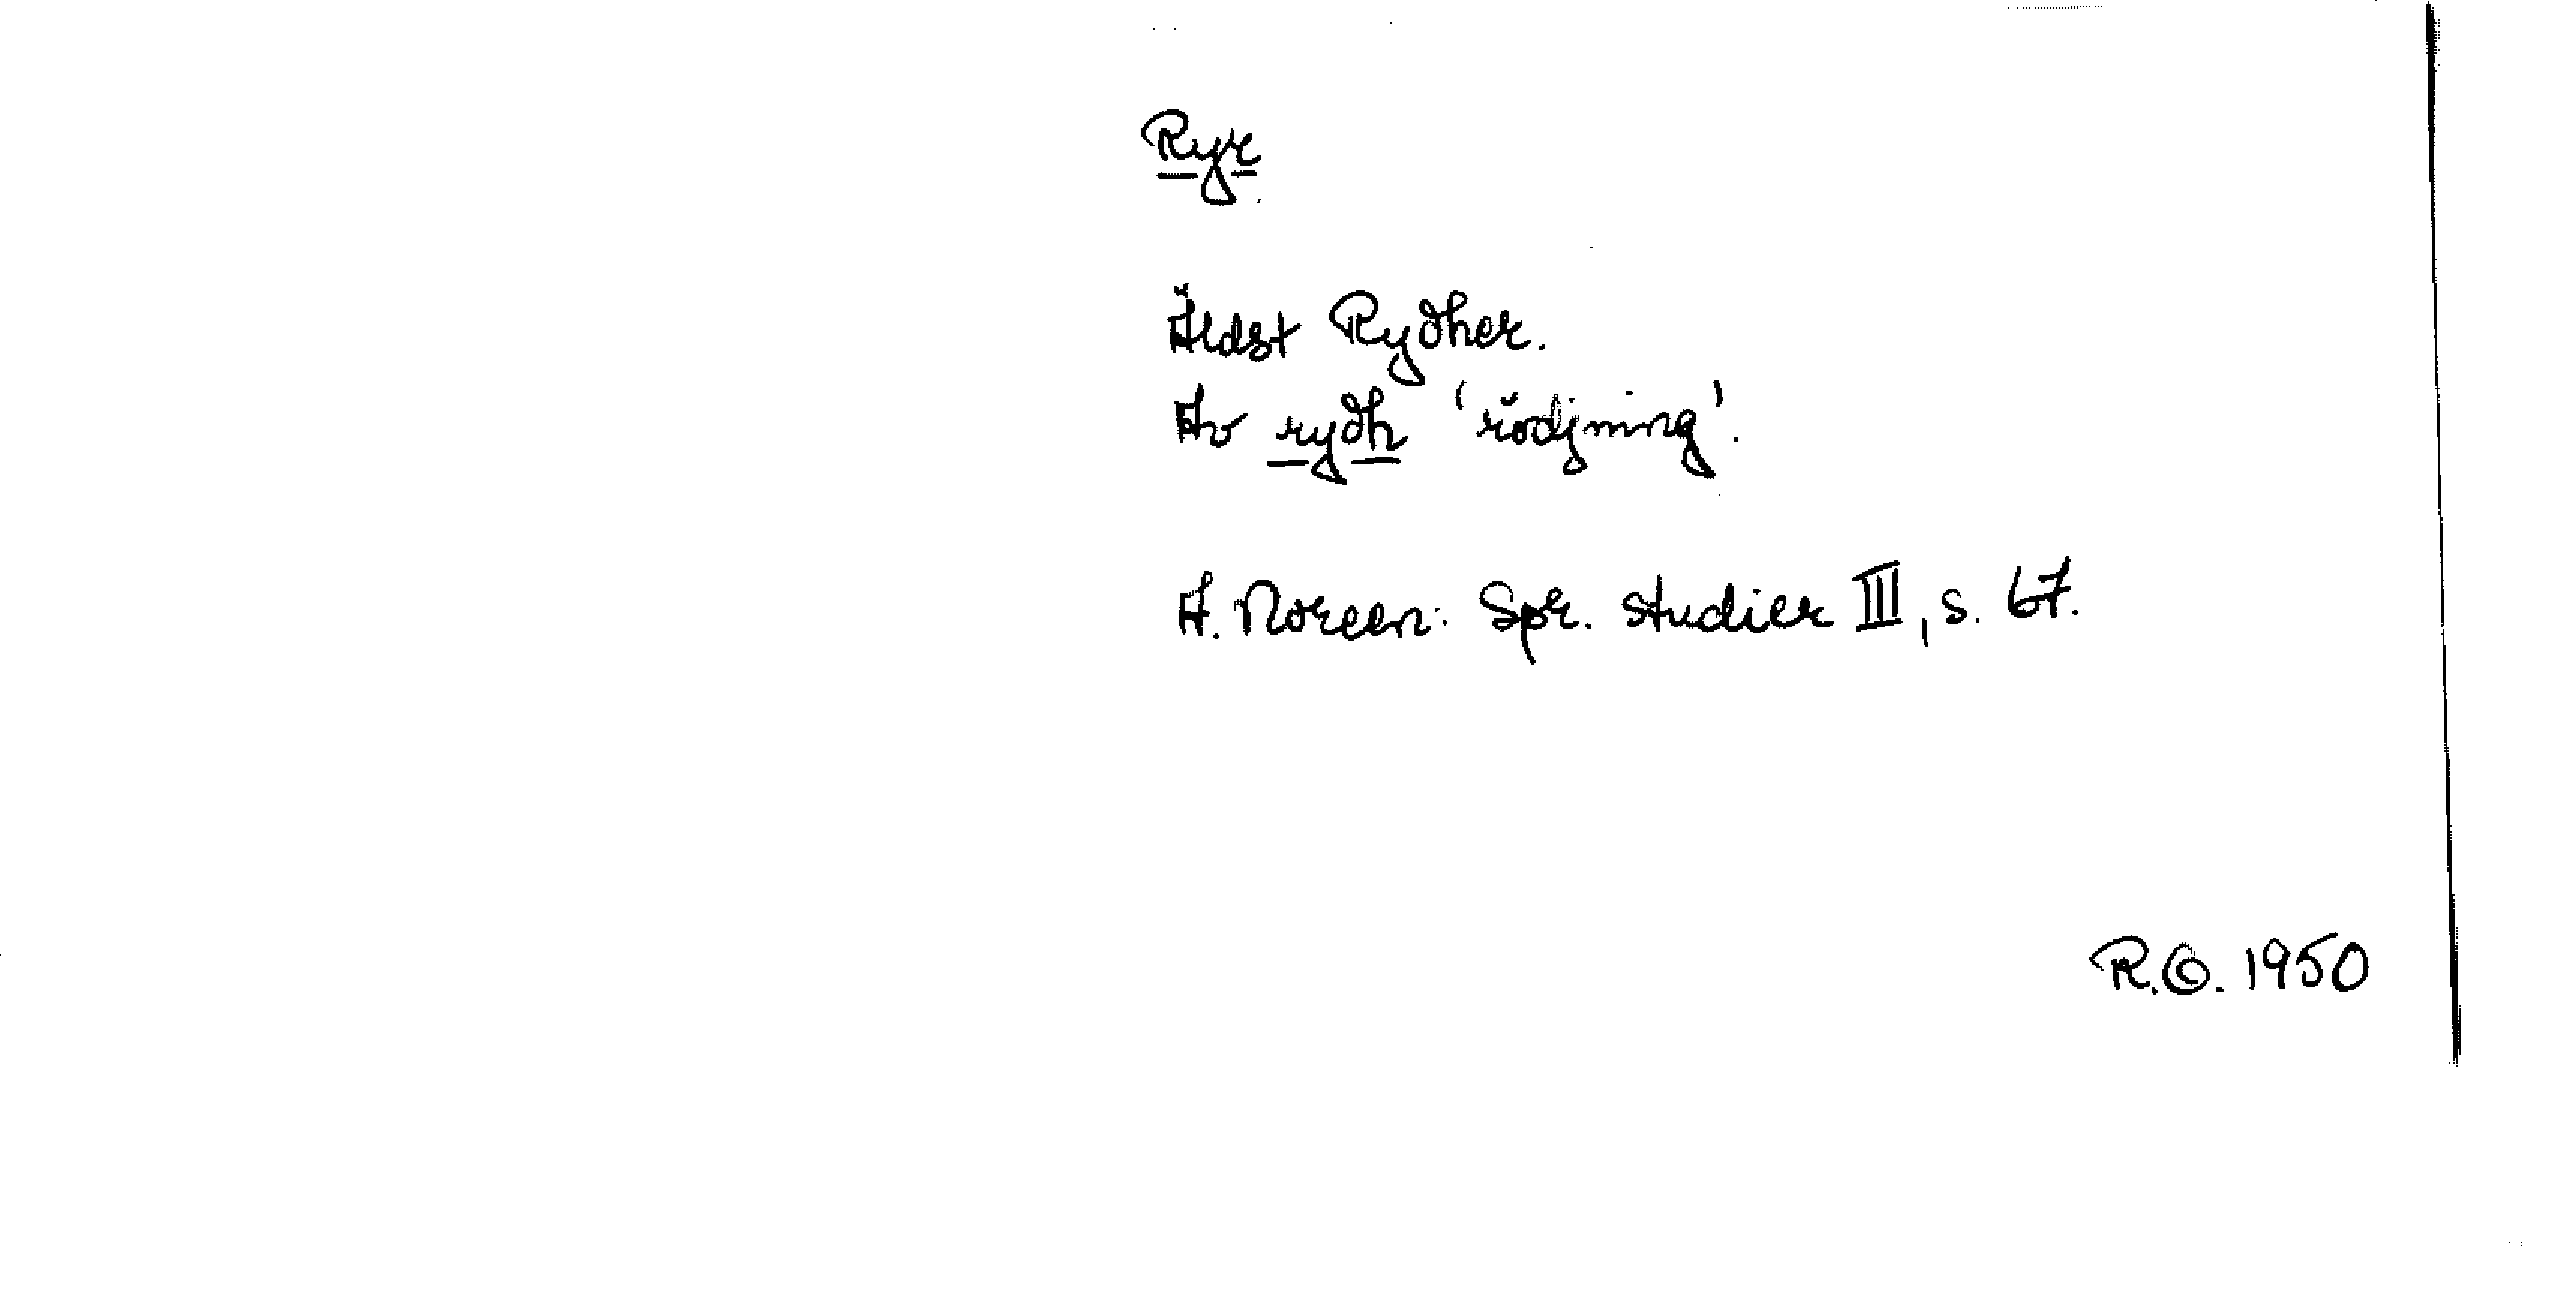 Ryr
Äldst Rydher.
Av rydh 'rödjning'.
A. Noreen: Spr. studier III, s. 67.
R.G. 1950